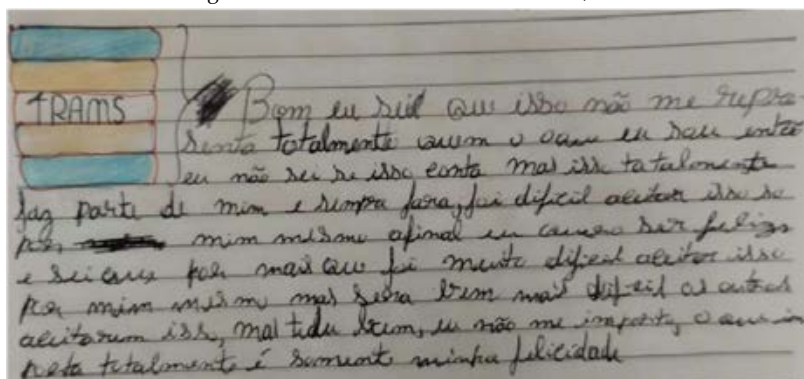 TRAMS
Bom eu seil que isso não me repre
senta totalmente quem o que eu sou então
eu não sei se isso conta mas isso totalmente
faz parte de mim e sempre fara, foi dificil aceitar isso so
por mim mesmo afinal eu quero ser feliz
e sei que por mais que foi muito dificil aceitar isso
por mim mesmo mas sera bem mais dificil os outros
aceitarem isso, mal tudo bem, eu não me importo, o que im
porta totalmente é somente minha felicidade